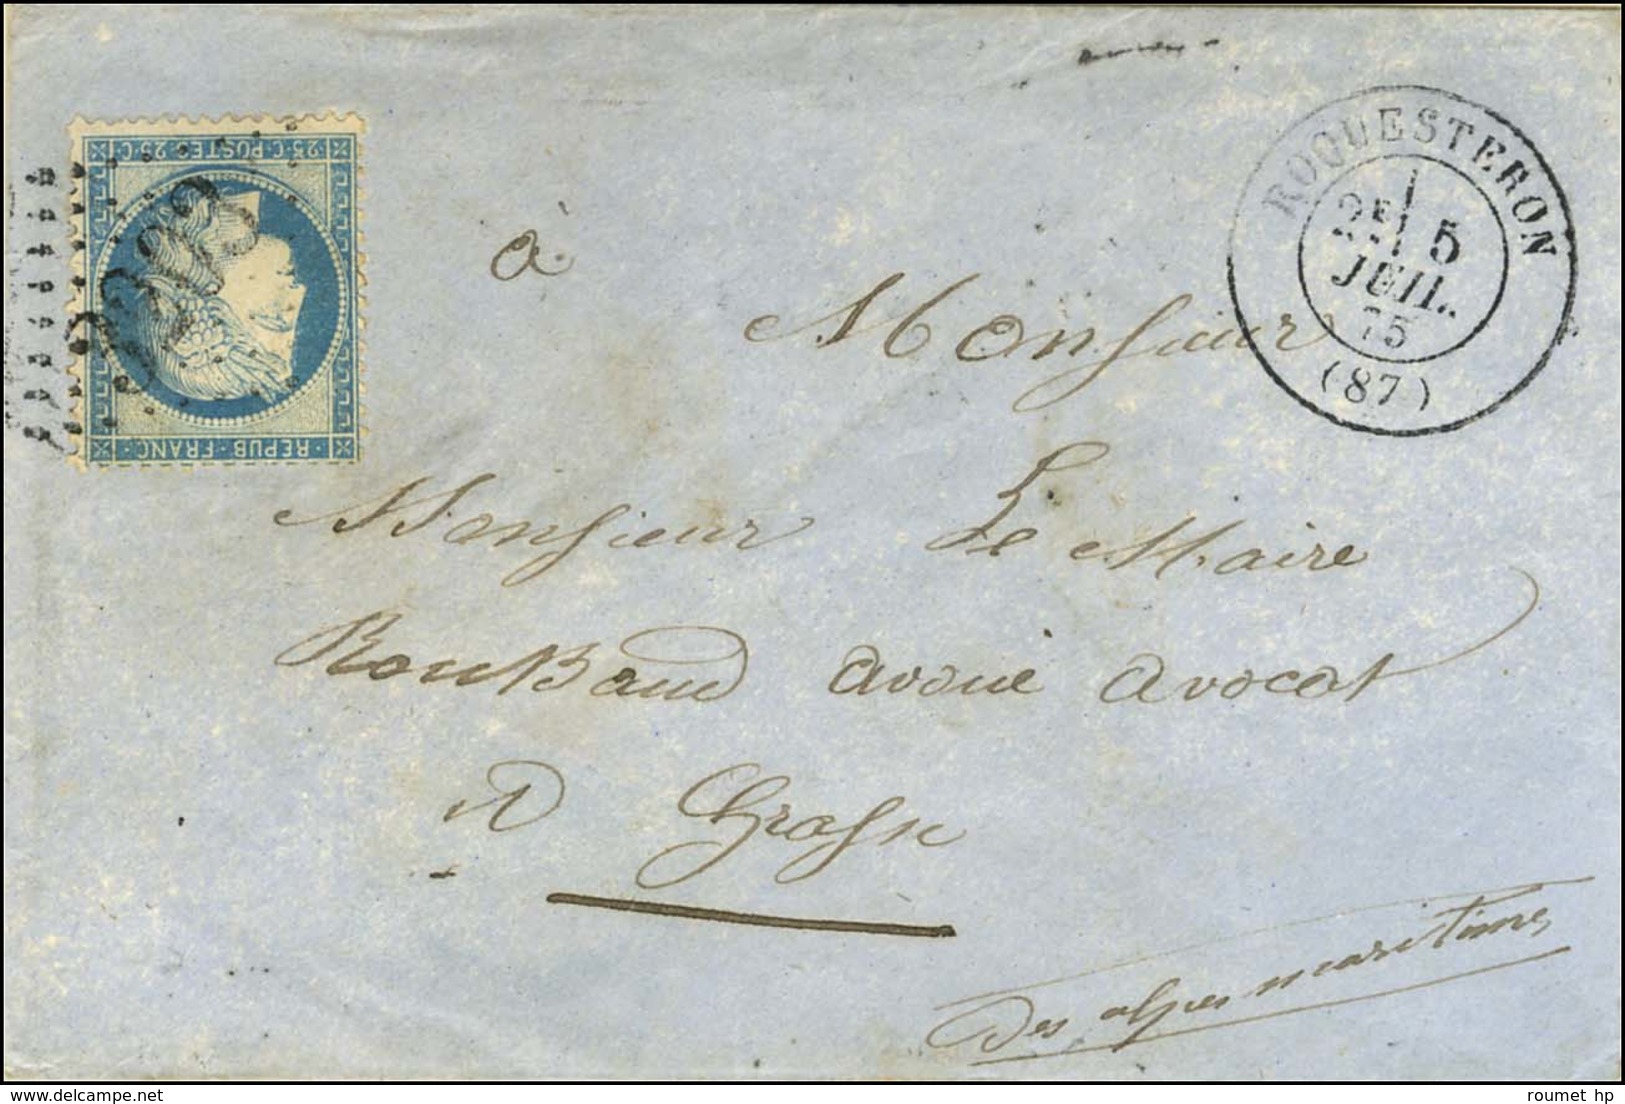 · 25 · C · POSTES 25 · C ·
· REPUB · FRANC ·
ROQUESTERON
2E 5
JUIL.
75
(87)
à
Monsieur
Monsieur Le Maire
Roubaud avoué avocat
A Grasse
Des alpes maritimes
roumet hp